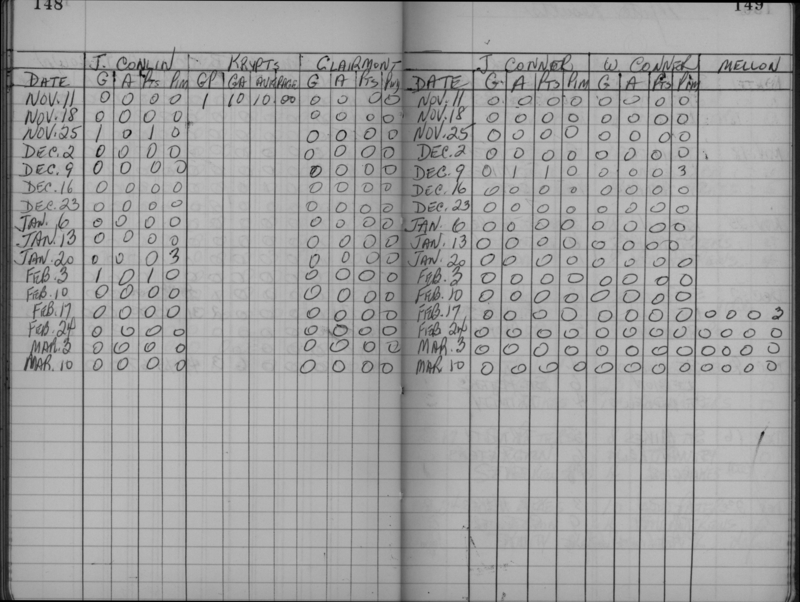 148
J. CONLIN KRYPTS CLAIRMONT
DATE G A PTS PIM GP GA AVERAGE G A PTS PIM
NOV. 11 0 0 0 0 1 10 10 00 0 0 0 0
NOV. 18 0 0 0 0 0 0 0 0
NOV. 25 1 0 1 0 0 0 0 0
DEC. 2 0 0 0 0 0 0 0 0
DEC. 9 0 0 0 0 0 0 0 0
DEC. 16 0 0 0 0 0 0 0 0
DEC. 23 0 0 0 0 0 0 0 0
JAN. 6 0 0 0 0 0 0 0 0
JAN. 13 0 0 0 0 0 0 0 0
JAN. 20 0 0 0 3 0 0 0 0
FEB. 3 1 0 1 0 0 0 0 0
FEB. 10 0 0 0 0 0 0 0 0
FEB. 17 0 0 0 0 0 0 0 0
FEB. 24 0 0 0 0 0 0 0 0
MAR. 3 0 0 0 0 0 0 0 0
MAR. 10 0 0 0 0 0 0 0 0
149
J CONNER W CONNER MELLON
DATE G A PTS PIM G A PTS PIM
NOV. 11 0 0 0 0 0 0 0 0
NOV. 18 0 0 0 0 0 0 0 0
NOV. 25 0 0 0 0 0 0 0 0
DEC. 2 0 0 0 0 0 0 0 0
DEC. 9 0 1 1 0 0 0 0 3
DEC. 16 0 0 0 0 0 0 0 0
DEC. 23 0 0 0 0 0 0 0 0
JAN. 6 0 0 0 0 0 0 0 0
JAN. 13 0 0 0 0 0 0 0 0
JAN. 20 0 0 0 0 0 0 0 0
FEB. 3 0 0 0 0 0 0 0 0
FEB. 10 0 0 0 0 0 0 0 0
FEB. 17 0 0 0 0 0 0 0 0 0 0 0 3
FEB 24 0 0 0 0 0 0 0 0 0 0 0 0
MAR. 3 0 0 0 0 0 0 0 0 0 0 0 0
MAR. 10 0 0 0 0 0 0 0 0 0 0 0 0